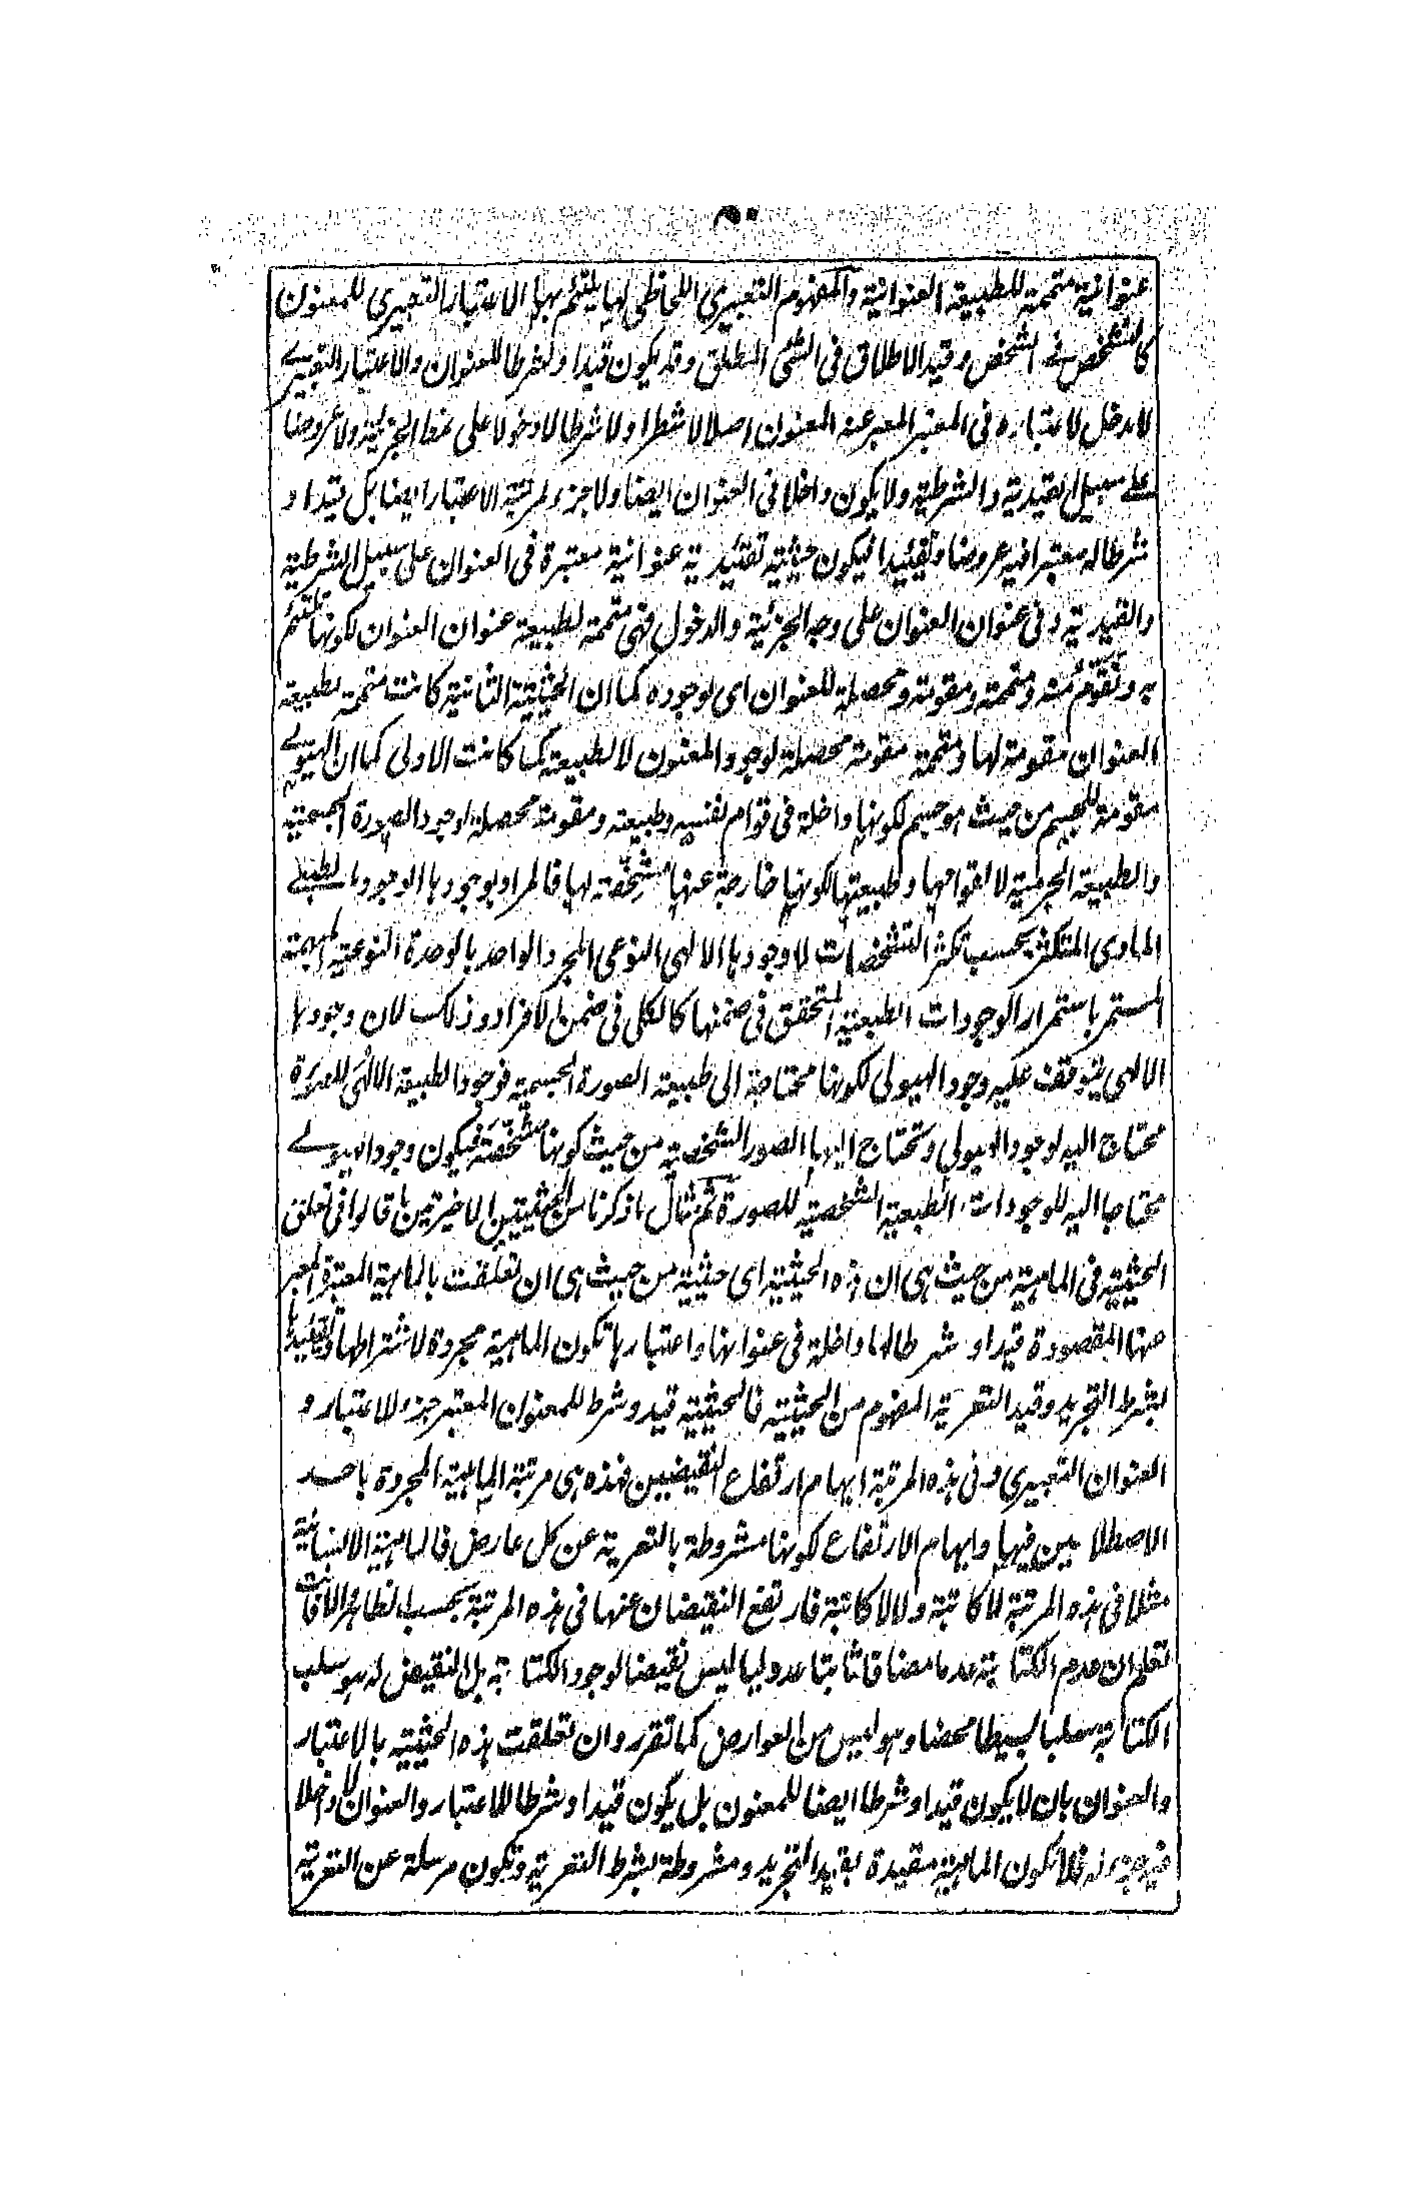 عنوانية متممة للطبيعة العنوانية والمفهوم التعبيري اللحاظي لها يلتئم بها الاعتبار التعبيري للمعنون
كالتشخص في الشخص وقيد الاطلاق في الشئ المطلق وقد يكون قيدا وشرطا للعنوان والاعتبار التعبيرے
لا دخل لاعتباره في المعتبر المعبر عنه المعنون اصلا لا شطرا ولا شرطا لا دخولا على نمط الجزئية ولا عروضا
علے سبيل القيدية والشرطية ولا يكون داخلا في العنوان ايضا ولا جزء لمرتبة الاعتبار ايضا بل قيدا و
شرطا له معتبرا فيه عروضا وتقييدا فيكون حيثية تقئيدية عنوانية معتبرة في العنوان على سبيل الشرطية
والقيدية وفي عنوان العنوان على وجه الجزئية والدخول فهي متممة لطبيعة عنوان العنوان لكونها تلتئم
به وتتقوم منه ومتممة ومقومة ومحصلة للعنوان اى لوجوده كما ان الحيثية الثانية كانت متممة لطبيعة
العنوان مقومة لها ومتممة مقومة محصلة لوجود المعنون لا لطبيعته كما كانت الاولى كما ان الهيولے
مقومة للجسم من حيث هو جسم لكونها داخلة في قوام نفسه وطبيعته ومقومة محصلة لوجود الصورة الجسمية
والطبيعة الجرمية لا لقوامها وطبيعتها لكونها خارجة عنها مشخصة لها فالمراد بوجودها الوجود الطبعے
المادى المتكثر بحسب تكثر التشخصات لا وجودها الالهى النوعى المجرد الواحد بالوحدة النوعية المبهمة
المستمر باستمرار الوجودات الطبعية المتحقق في ضمنها كالكلى في ضمن الافراد وذلك لان وجودها
الالهى يتوقف عليه وجود الهيولى لكونها محتاجة الى طبيعة الصورة الجسمية فوجود الطبيعة الالهى للصورة
محتاج اليه لوجود الهيولى وتحتاج اليها الصور الشخصية من حيث كونها مشخصة فيكون وجود الهيولے
محتاجا اليه للوجودات الطبعية الشخصية للصورة ثم مثال ما ذكرنا من الحيثيتين الاخيرتين ما قالوا في تعلق
الحيثية في الماهية من حيث هى ان هذه الحيثية اى حيثية من حيث هى ان تعلقت بالماهية المعتبرة المعبر
عنها المقصودة قيدا و شرطا لها داخلة في عنوانها واعتبارها تكون الماهية مجردة لاشتراطها وتقييدها
بشرط التجريد وقيد التعرية المفهوم من الحيثية فالحيثية قيد وشرط للمعنون المعتبر جزء للاعتبار و
العنوان التعبيرى وفى هذه المرتبة ايهام ارتفاع النقيضين فهذه هى مرتبة الماهية المجردة باحد
الاصطلاحين فيها وايهام الارتفاع كونها مشروطة بالتعرية عن كل عارض فالماهية الانسانية
مثلا في هذه المرتبة لا كاتبة ولا لا كاتبة فارتفع النقيضان عنها في هذه المرتبة بحسب الظاهر الا انت
تعلم ان عدم الكتابة عدما مضافا ثابتا عدوليا ليس نقيضا لوجود الكتابة بل النقيض له هو سلب
الكتابة سلبا بسيطا محضا وهو ليس من العوارض كما تقرر وان تعلقت هذه الحيثية بالاعتبار
والعنوان بان لا يكون قيدا وشرطا ايضا للمعنون بل يكون قيدا وشرطا للاعتبار والعنوان لا داخلا
فيه جزء له فلا تكون الماهية مقيدة بقيد التجريد ومشروطة بشرط التعرية وتكون مرسلة عن التعرية